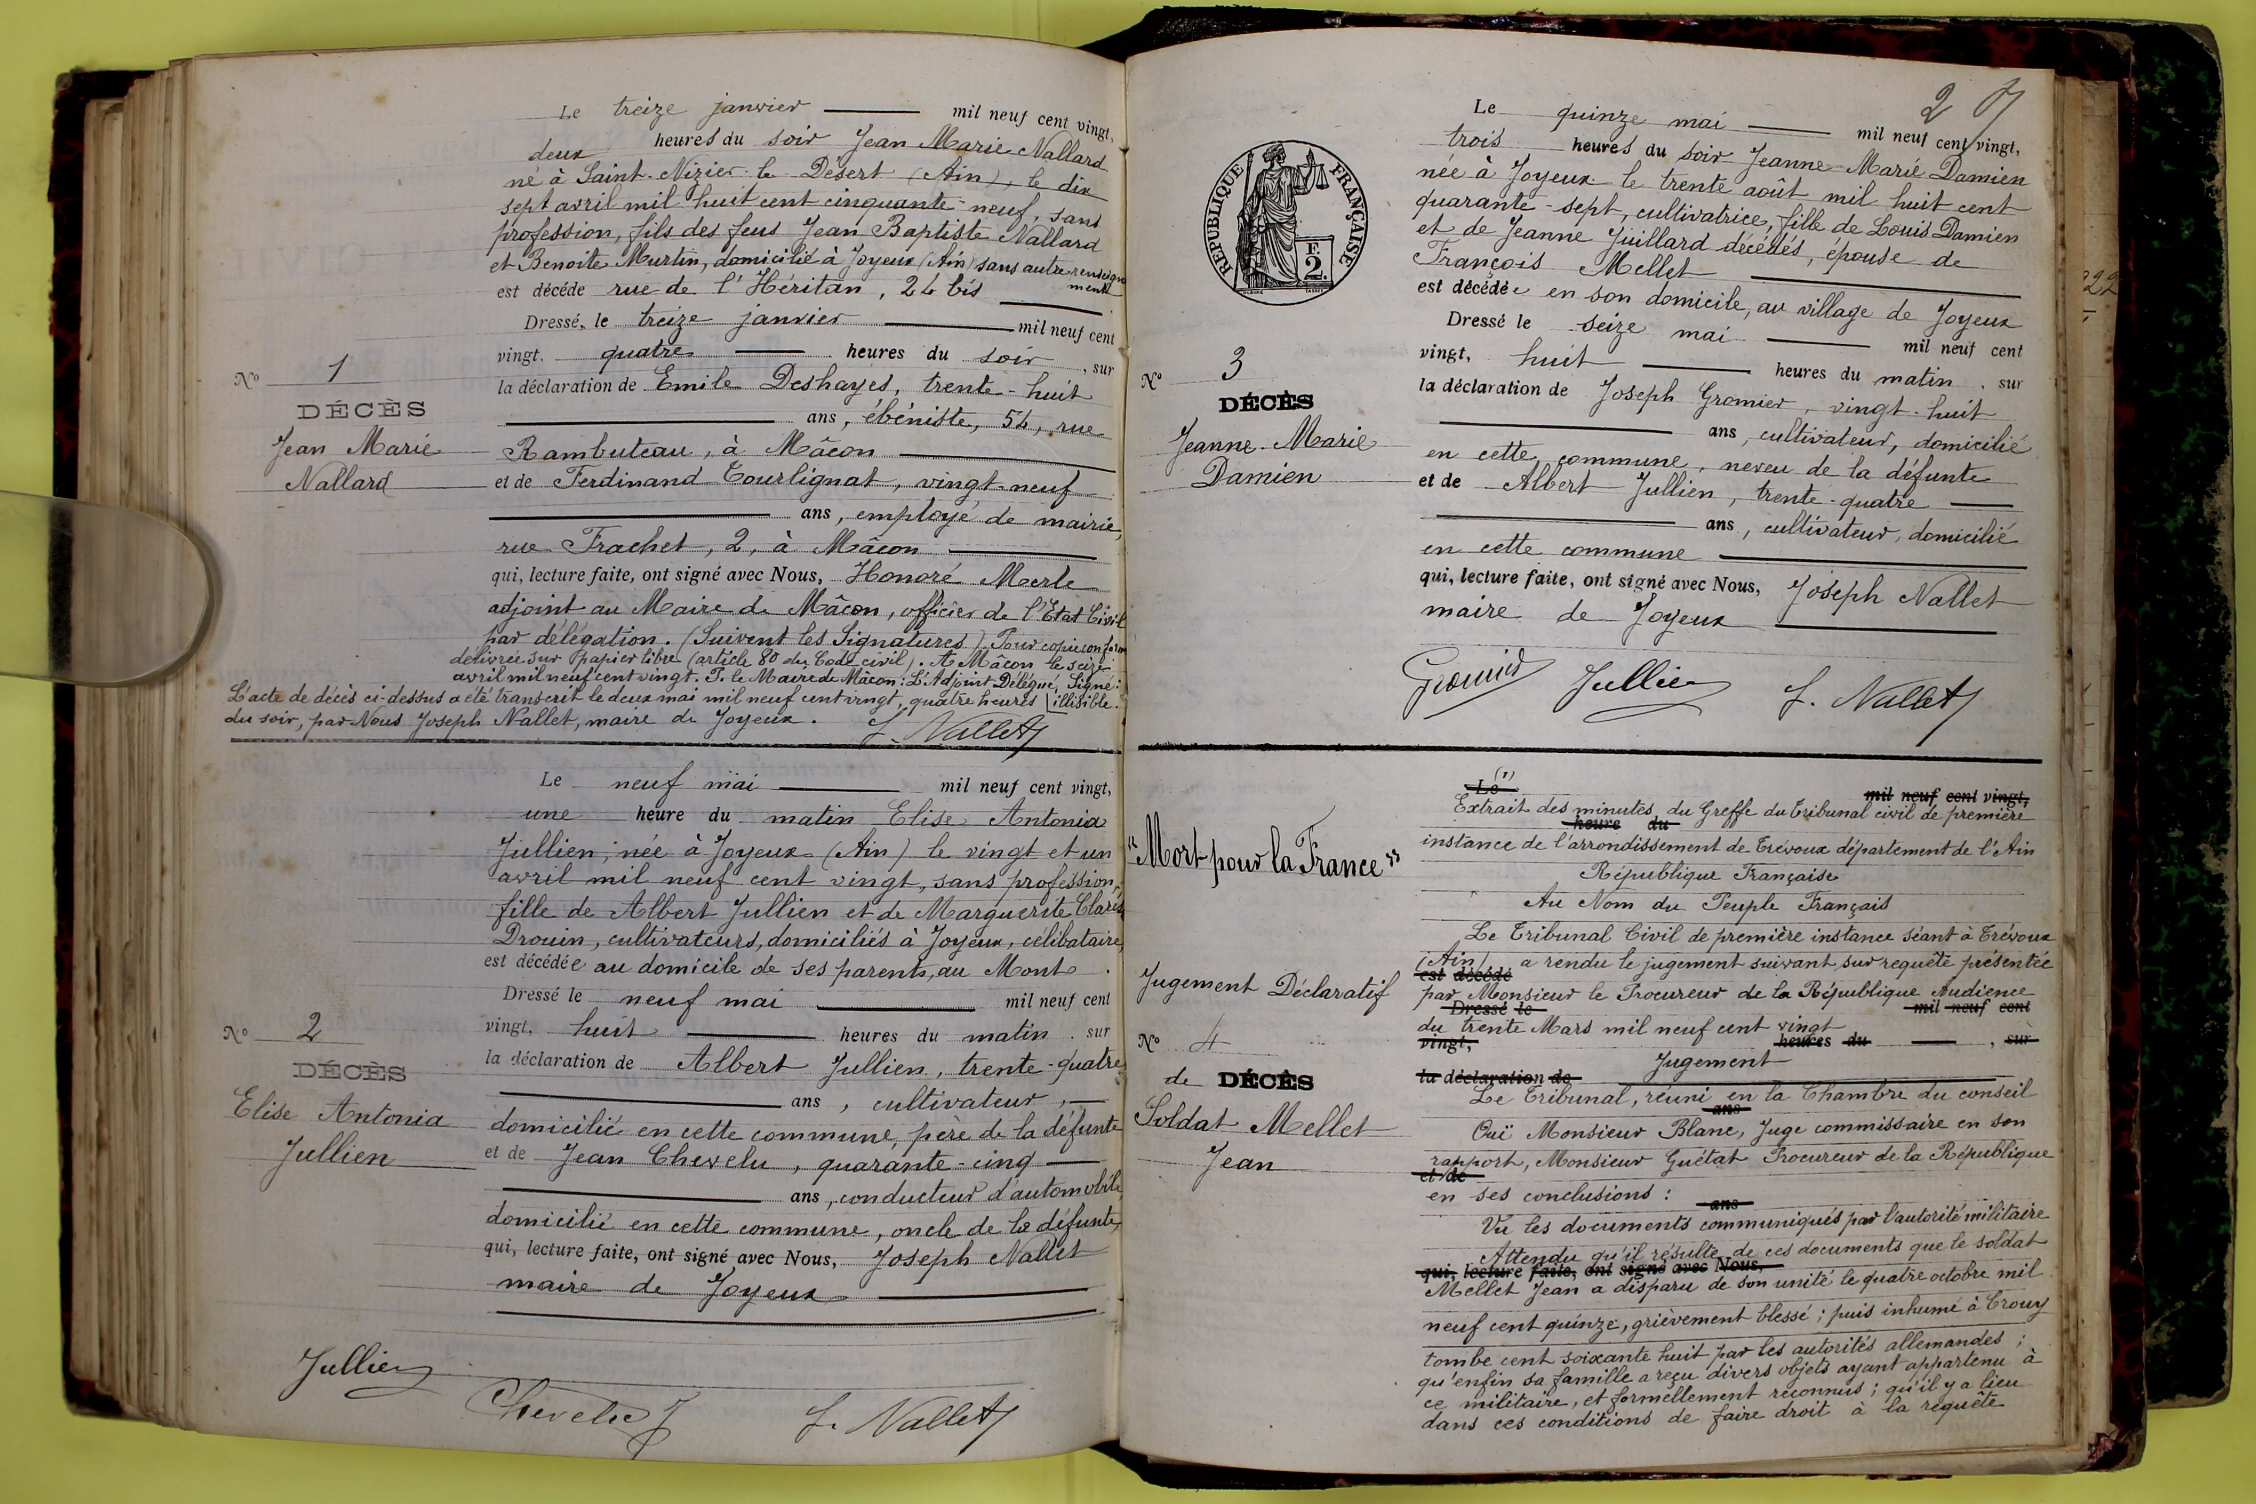 Le treize janvier mil neuf cent vingt,
deux heures du soir Jean Marie Nallard
né à Saint-Nizier-le Désert (Ain), le dix
sept avril mil huit cent cinquante-neuf, sans
profession, fils des feus Jean Baptiste Nallard
et Benoite Murtin, domicilié à Joyeux (Ain) sans autre renseigne
ments
est décédé rue de l'Héritan, 24 bis
Dressé, le treize janvier mil neuf cent
vingt, quatre heures du soir, sur
la déclaration de Emile Deshayes, trente-huit
ans, ébéniste, 54, rue
Rambuteau, à Mâcon
et de Ferdinand Tourlignat, vingt-neuf
ans, employé de mairie,
rue Frachet, 2, à Mâcon
qui, lecture faite, ont signé avec Nous, Honoré Merle
adjoint au Maire de Mâcon, officier de l'Etat Civil
par délégation. (Suivent les Signatures). Pour copie conforme
délivrée sur papier libre (article 80 du Code civil). A Mâcon le seize
avril mil neuf cent vingt. P. le Maire de Mâcon: L'Adjoint Délégué, Signé:
illisible.
L'acte de décès ci-dessus a été transcrit le deux mai mil neuf cent vingt, quatre heures
du soir, par Nous Joseph Nallet, maire de Joyeux.
J. Nallet
No 1
DÉCÈS
Jean Marie
Nallard
Le neuf mai mil neuf cent vingt,
une heure du matin Elise Antonia
Jullien, née à Joyeux (Ain) le vingt et un
avril mil neuf cent vingt, sans profession,
fille de Albert Jullien et de Marguerite Claris
Drouin, cultivateurs, domiciliés à Joyeux, célibataire,
est décédée au domicile de ses parents, au Mont.
Dressé le neuf mai mil neuf cent
vingt, huit heures du matin, sur
la déclaration de Albert Jullien, trente-quatre
ans, cultivateur,
domicilié en cette commune, père de la défunte
et de Jean Chevelu, quarante-cinq
ans, conducteur d'automobile,
domicilié en cette commune, oncle de la défunte,
qui, lecture faite, ont signé avec Nous, Joseph Nallet
maire de Joyeux
No 2
DÉCÈS
Elise Antonia
Jullien
Jullien
Chevelu J
J. Nallet
2
RÉPUBLIQUE FRANÇAISE
F.
2.
Le quinze mai mil neuf cent vingt,
trois heures du soir Jeanne-Marie Damien
née à Joyeux le trente août mil huit cent
quarante-sept, cultivatrice, fille de Louis Damien
et de Jeanne Juillard décédés, épouse de
François Mellet
est décédée en son domicile, au village de Joyeux
Dressé le seize mai mil neuf cent
vingt, huit heures du matin, sur
la déclaration de Joseph Gromier, vingt-huit
ans, cultivateur, domicilié
en cette commune, neveu de la défunte
et de Albert Jullien, trente-quatre
ans, cultivateur, domicilié
en cette commune
qui, lecture faite, ont signé avec Nous, Joseph Nallet
maire de Joyeux
No 3
DÉCÈS
Jeanne-Marie
Damien
Gromier Jullien J. Nallet
"Mort pour la France"
Jugement Déclaratif
No 4
de DÉCÈS
Soldat Mellet
Jean
(1)
Le mil neuf cent vingt,
Extrait des minutes du Greffe du Tribunal civil de première
heure du
instance de l'arrondissement de Trévoux département de l'Ain
République Française
Au Nom du Peuple Français
Le Tribunal Civil de première instance séant à Trévoux
(Ain) a rendu le jugement suivant sur requête présentée
est décédé
par Monsieur le Procureur de la République Audience
Dressé le mil neuf cent
du trente Mars mil neuf cent vingt
vingt, heures du, sur
Jugement
la déclaration de
Le Tribunal, réuni en la Chambre du conseil
ans
Ouï Monsieur Blanc, Juge commissaire en son
rapport, Monsieur Guétat Procureur de la République
et de
en ses conclusions:
ans
Vu les documents communiqués par l'autorité militaire
Attendu qu'il résulte de ces documents que le soldat
qui, lecture faite, ont signé avec Nous,
Mellet Jean a disparu de son unité le quatre octobre mil
neuf cent quinze, grièvement blessé; puis inhumé à Crouy
tombe cent soixante huit par les autorités allemandes;
qu'enfin sa famille a reçu divers objets ayant appartenu à
ce militaire, et formellement reconnus; qu'il y a lieu
dans ces conditions de faire droit à la requête
22